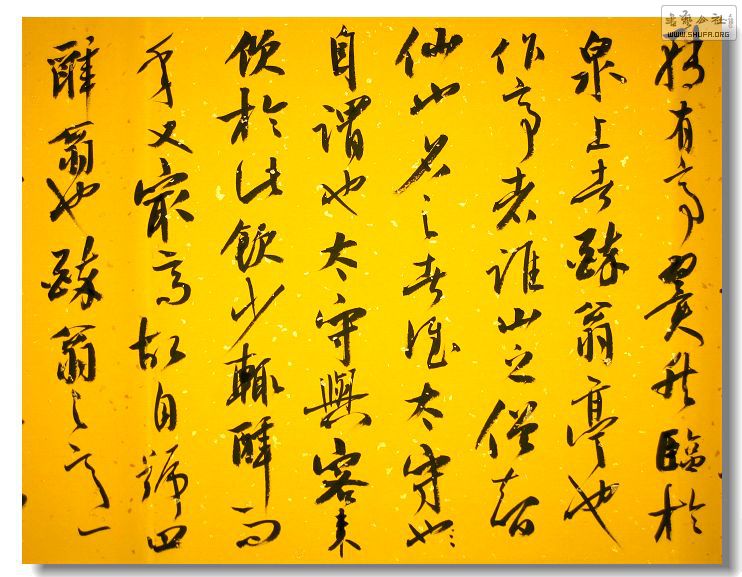 轉有亭翼然臨於
泉上者醉翁亭也
作亭者誰山之僧智
仙也名之者誰太守也
自謂也太守與客來
飲於此飲少輒醉而
年又最高故自號曰
醉翁也醉翁之意
书艺公社
WWW.SHUFA.ORG